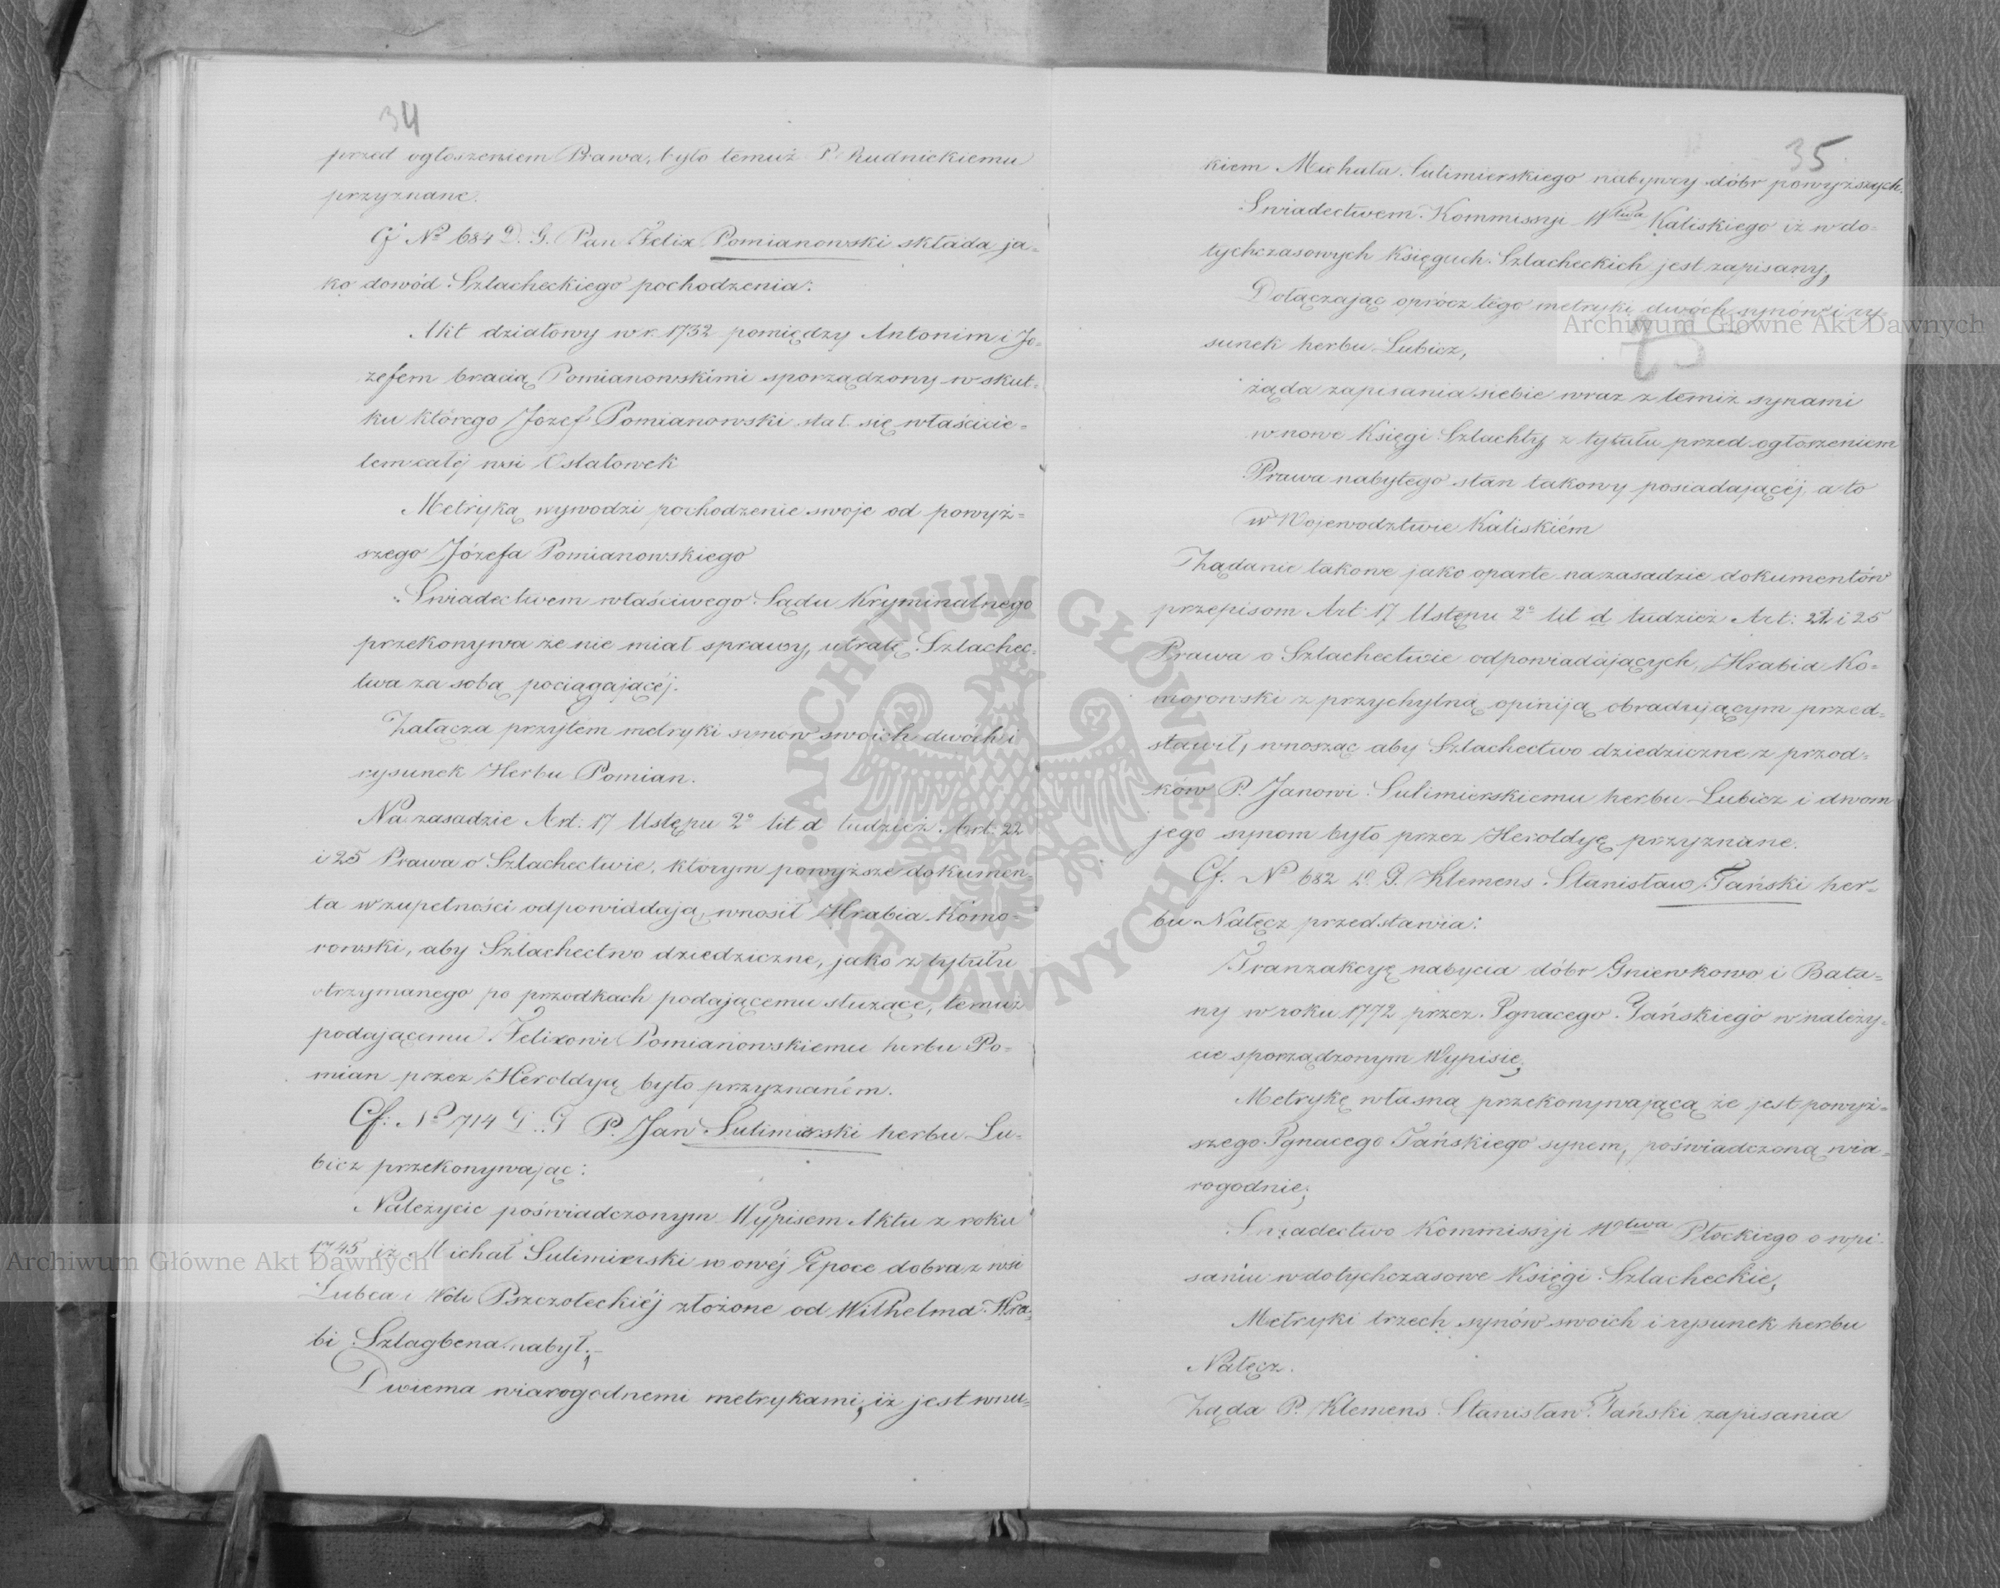 34
przed ogłoszeniem Prawa, było temuż P. Rudnickiemu
przyznane.
Cf No 684 D. G. Pan Felix Pomianowski składa ja-
ko dowód Szlacheckiego pochodzenia:
Akt działowy w r. 1732 pomiędzy Antonim i Jó-
zefem bracią Pomianowskimi sporządzony w skut-
ku którego Józef Pomianowski stał się właścicie-
lem całéj wsi Ostałowek
Metryką wywodzi pochodzenie swoje od powyż-
szego Józefa Pomianowskiego
Swiadectwem właściwego Sądu Kryminalnego
przekonywa że nie miał sprawy, utratę Szlachec-
twa za sobą pociągającéj.
Załącza przytem metryki synów swoich dwóch i
rysunek Herbu Pomian.
Na zasadzie Art: 17 Ustępu 2o lit d tudzież Art: 22
i 25 Prawa o Szlachectwie, którym powyższe dokumen-
ta w zupełności odpowiadają, wnosił Hrabia Komo-
rowski, aby Szlachectwo dziedziczne, jako z tytułu
otrzymanego po przodkach podającemu służące, temuż
podającemu Felixowi Pomianowskiemu herbu Po-
mian przez Heroldyą było przyznaném.
Cf: No 714 D. G P. Jan Sulimierski herbu Lu-
bicz przekonywając:
Należycie poświadczonym Wypisem Aktu z roku
1745 iż Michał Sulimierski w owéj Epoce dobra z wsi
Lubca i Woli Pszczołeckiéj złożone od Wilhelma Hra-
bi Szlagbena nabył;
Dwiema wiarogodnemi metrykami, iż jest wnu-
35
kiem Michała Sulimierskiego nabywcy dóbr powyższych.
Swiadectwem Kommissyi Wztwa Kaliskiego iż w do-
tychczasowych Księgach Szlacheckich jest zapisany,
Dołączając oprócz tego metryki dwóch synów i ry-
sunek herbu Lubicz,
żąda zapisania siebie wraz z temiż synami
w nowe Księgi Szlachty z tytułu przed ogłoszeniem
Prawa nabytego stan takowy posiadającéj, a to
w Województwie Kaliskiém
Żądanie takowe jako oparte na zasadzie dokumentów
przepisom Art: 17 Ustępu 2o lit d tudzież Art: 22 i 25
Prawa o Szlachectwie odpowiadających, Hrabia Ko-
morowski z przychylną opinją obradującym przed-
stawił, wnosząc aby Szlachectwo dziedziczne z przod-
ków P. Janowi Sulimierskiemu herbu Lubicz i dwom
jego synom było przez Heroldyę przyznane.
Cf. No 682 D. G. Klemens Stanisław Tański her-
bu Nałęcz przedstawia:
Tranzakcyę nabycia dóbr Gniewkowo i Bata-
ny w roku 1772 przez Ignacego Tańskiego w należy-
cie sporządzonym Wypisie;
Metrykę własną przekonywającą że jest powyż-
szego Ignacego Tańskiego synem, poświadczoną wia-
rogodnie;
Swiadectwo Kommissyi Wdztwa Płockiego o wpi-
saniu w dotychczasowe Księgi Szlacheckie,
Metryki trzech synów swoich i rysunek herbu
Nałęcz.
Żąda P. Klemens Stanisław Tański zapisania
Archiwum Główne Akt Dawnych
Archiwum Główne Akt Dawnych
ARCHIWUM GŁÓWNE AKT DAWNYCH